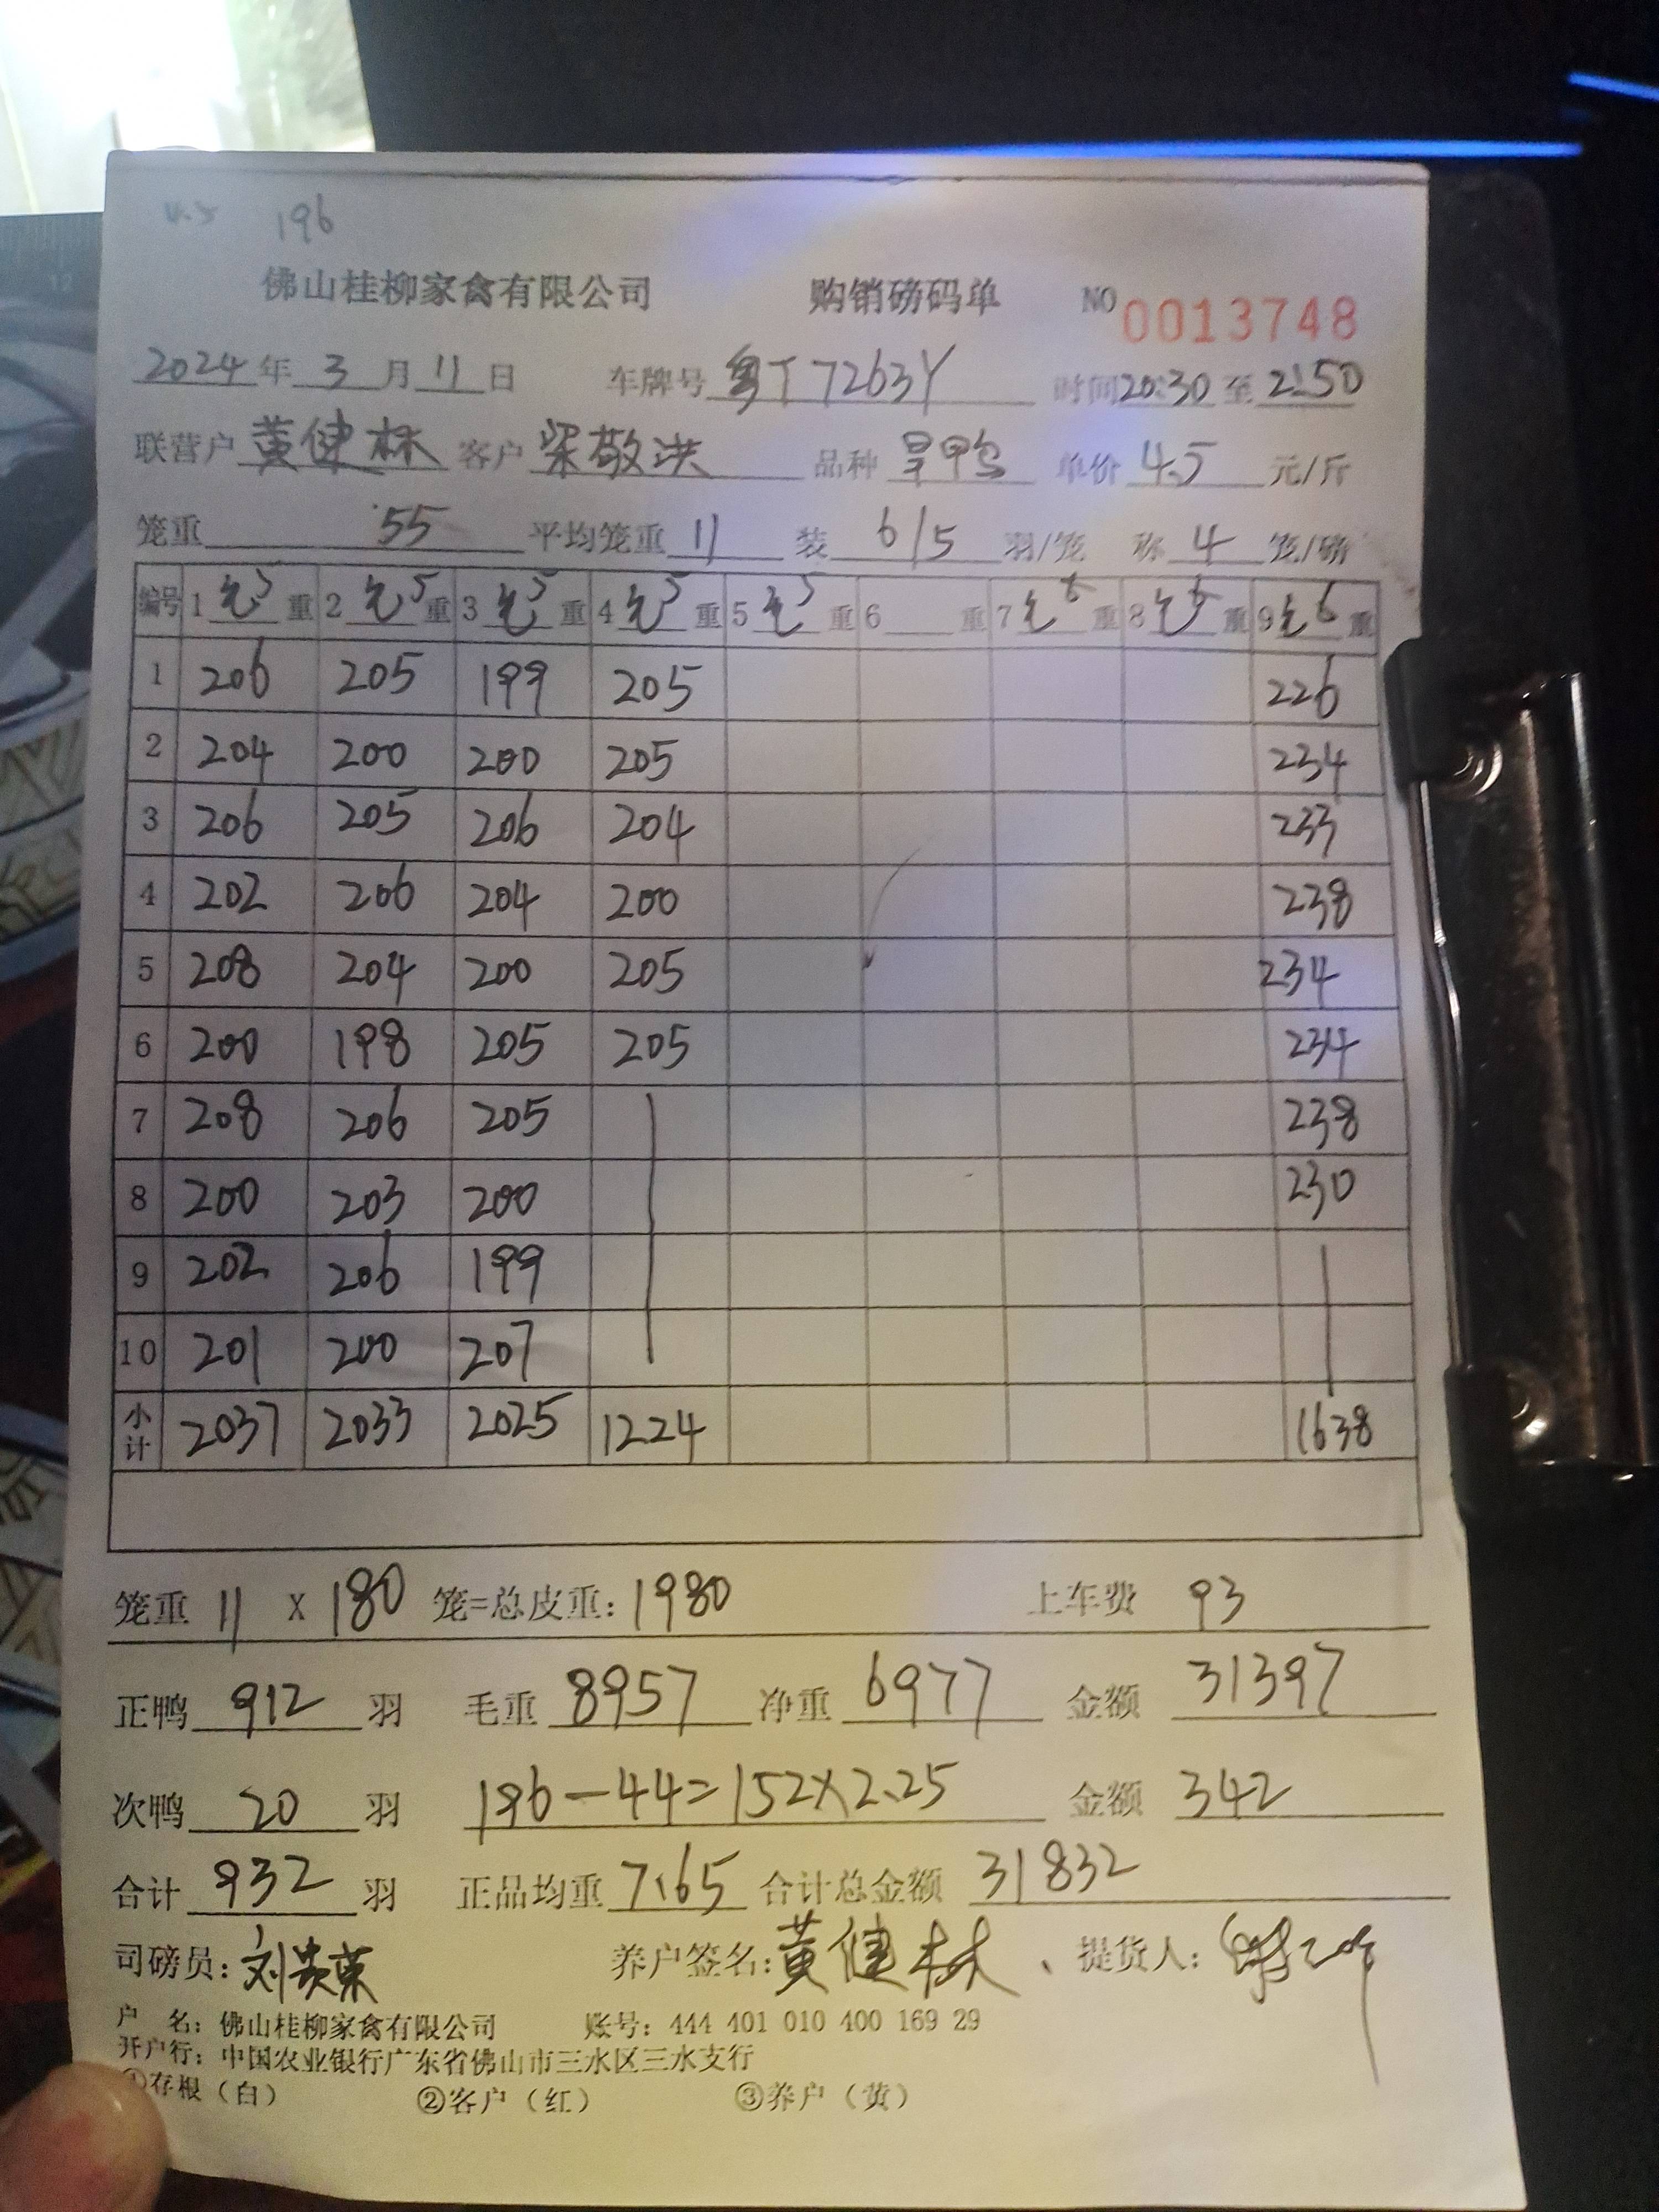 4.5 196
佛山桂柳家禽有限公司 购销磅码单 NO 0013748
2024年3月11日 车牌号 粤T7263Y 时间20:30至21:50
联营户 黄健林 客户 梁敬洪 品种 单价 4.5 元/斤
笼重 55 平均笼重 11 装 6/5 羽/笼 称 4 笼/磅
编号 1 毛5 重 2 毛5 重 3 毛5 重 4 毛5 重 5 毛5 重 6 重 7 毛6 重 8 毛6 重 9 毛6 重
1 206 205 199 205 226
2 204 200 200 205 234
3 206 205 206 204 233
4 202 206 204 200 238
5 208 204 200 205 234
6 200 198 205 205 234
7 208 206 205 238
8 200 203 200 230
9 202 206 199
10 201 200 207
小计 2037 2033 2025 1224 1638
笼重 11 X 180 笼=总皮重：1980 上车费 93
正鸭 912 羽 毛重 8957 净重 6977 金额 31397
次鸭 20 羽 196-44=152×2.25 金额 342
合计 932 羽 正品均重 7.65 合计总金额 31832
司磅员：刘 养户签名：黄健林 提货人：
户 名：佛山桂柳家禽有限公司 账号：444 401 010 400 169 29
开户行：中国农业银行广东省佛山市三水区三水支行
①存根（白） ②客户（红） ③养户（黄）